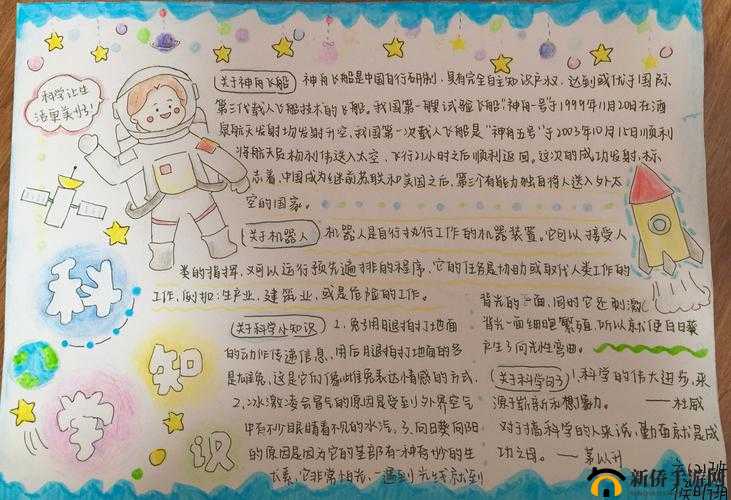 科学让生
活更美好!
关于神舟飞船 神舟飞船是中国自行研制,具有完全自主知识产权,达到或优于国际
第三代载人飞船技术的飞船。我国第一艘试验飞船"神舟一号"于1999年11月20日在酒
泉航天发射场发射升空,我国第一次载人飞船是"神舟五号"于2003年10月15日顺利
将航天员杨利伟送入太空,飞行21小时之后顺利返回。这次的成功发射,标
志着,中国成为继前苏联和美国之后,第三个有能力独自将人送入外太
空的国家。
关于机器人 机器人是自行执行工作的机器装置。它可以接受人
类的指挥,又可以运行预先编排的程序,它的任务是协助或取代人类工作的
工作,例如:生产业,建筑业,或是危险的工作。
科
学
知
识
关于科学小知识 1.兔子用后腿拍打地面
的动作传递信息,用后腿拍打地面的多
是雄兔,这是它们像雌兔表达情感的方式
2.冰激凌会冒气的原因是受到外界空气
中有不少眼睛看不见的水汽。3.向日葵向阳
的原因是因为它的茎部有一种奇妙的生
长素,它非常怕光,一遇到光线就到
背光的一面,同时它还刺激
背光一面细胞繁殖,所以就使向日葵
产生了向光性弯曲。
关于科学句子 1.科学的伟大进步,来
源于崭新和想力。
——杜威
对于搞科学的人来说,勤奋就是成
功之母。——茅以升
新侨手游网